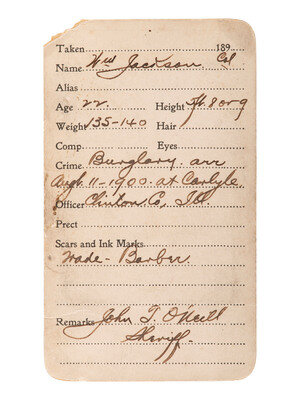 Taken 189
Name Wm Jackson Col
Alias
Age 22 Height 8 or 9
Weight 135-140 Hair
Comp. Eyes
Crime Burglary arr
Augt. 11-1900 at Carlyle,
Officer Clinton Co, Ill.
Prect
Scars and Ink Marks
Trade- Barber.
Remarks John T. O'Neill
Sheriff.